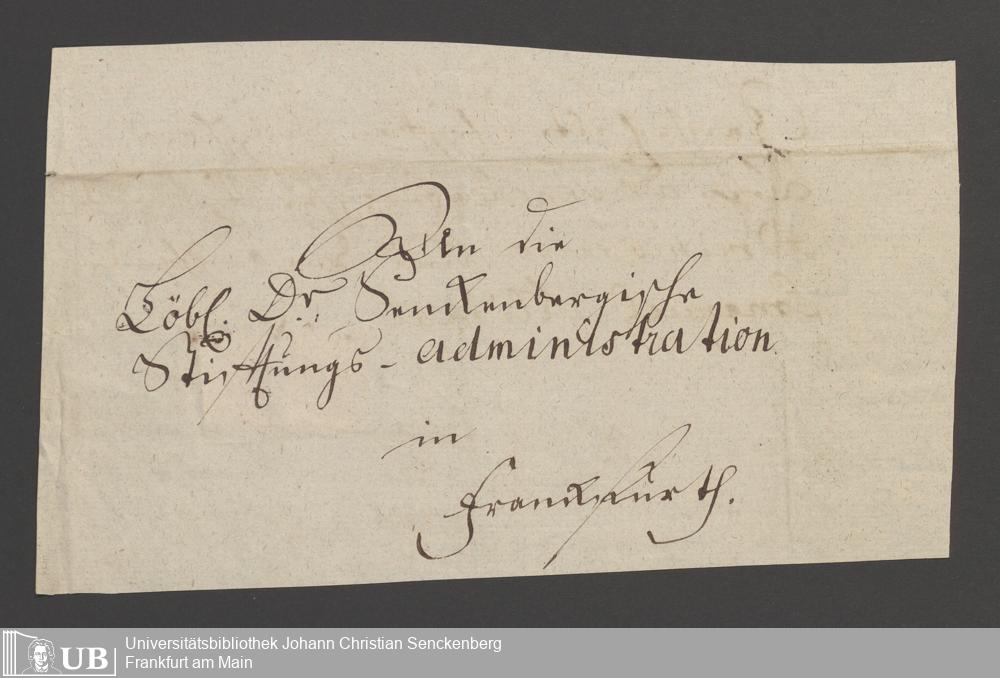 An die
Löbl. Dr. Senckenbergische
Stifftungs-administration
in
Franckfurth.
UB
Universitätsbibliothek Johann Christian Senckenberg
Frankfurt am Main